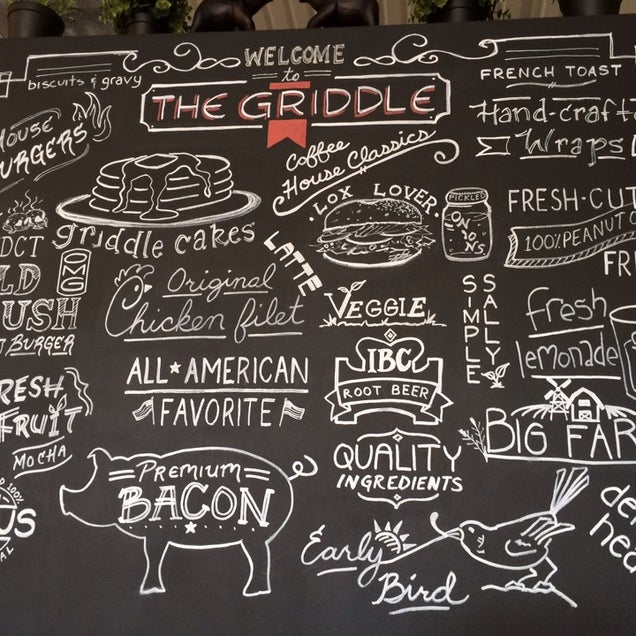 WELCOME
to
THE GRIDDLE
biscuits & gravy
HOUSE
BURGERS
griddle cakes
Coffee
House Classics
FRENCH TOAST
Hand-craft
Wraps
LOX LOVER
PICKLED
ONIONS
FRESH-CUT
100% PEANUT
FR
DCT
LD
USH
BURGER
OMG
Original
Chicken filet
LATTE
VEGGIE
SIMPLE
SALLY
fresh
lemonade
ALL★AMERICAN
FAVORITE
IBC
ROOT BEER
RESH
FRUIT
MOCHA
100%
US
AL
Premium
BACON
QUALITY
INGREDIENTS
BIG FAR
Early
Bird
de
hea